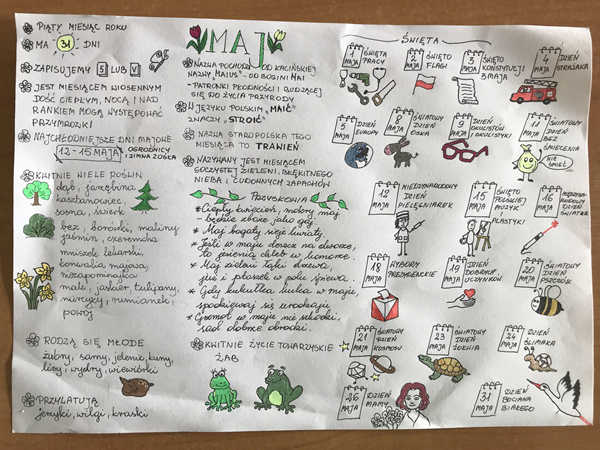 MAJ
PIĄTY MIESIĄC ROKU
MA 31 DNI
ZAPISUJEMY 5 LUB V
JEST MIESIĄCEM WIOSENNYM
DOŚĆ CIEPŁYM, NOCĄ I NAD
RANKIEM MOGĄ WYSTĘPOWAĆ
PRZYMROZKI
NAJCHŁODNIEJSZE DNI MAJOWE
12-15 MAJA OGRODNICY
I ZIMNA ZOŚKA
KWITNIE WIELE ROŚLIN
dąb, jarzębina
kasztanowiec,
sosna, świerk
bez, borówki, maliny,
jaśmin, czeremcha
mniszek lekarski,
konwalia majowa,
niezapominajki,
maki, jaskier, tulipany,
narcyzy, rumianek,
powój
RODZĄ SIĘ MŁODE
żubry, sarny, jelenie, kuny,
lisy, wydry, wiewiórki
PRZYLATUJĄ
jerzyki, wilgi, kraski
NAZWA POCHODZI OD ŁACIŃSKIEJ
NAZWY "MAIUS" - OD BOGINI MAI
- PATRONKI PŁODNOŚCI I BUDZĄCEJ
SIĘ DO ŻYCIA PRZYRODY
W JĘZYKU POLSKIM "MAIĆ"
ZNACZY "STROIĆ"
NAZWA STAROPOLSKA TEGO
MIESIĄCA TO TRAWIEŃ
NAZYWANY JEST MIESIĄCEM
SOCZYSTEJ ZIELENI, BŁĘKITNEGO
NIEBA I CUDOWNYCH ZAPACHÓW
PRZYSŁOWIA
* Ciepły kwiecień, mokry maj
- będzie zboże jako gaj.
* Maj bogaty sieje kwiaty.
* Jeśli w maju deszcz na dworze,
to jesienią chleb w komorze.
* Maj zieleni łąki, drzewa,
już i ptaszek w polu śpiewa.
* Gdy kukułka kuka w maju,
spodziewaj się urodzaju.
* Grzmot w maju nie szkodzi,
sad dobrze obrodzi.
KWITNIE ŻYCIE TOWARZYSKIE
ŻAB
ŚWIĘTA
1 MAJA ŚWIĘTO PRACY
2 MAJA ŚWIĘTO FLAGI
3 MAJA ŚWIĘTO KONSTYTUCJI 3 MAJA
4 MAJA DZIEŃ STRAŻAKA
5 MAJA DZIEŃ EUROPY
8 MAJA ŚWIATOWY DZIEŃ OSŁA
9 MAJA DZIEŃ OKULISTÓW I OKULISTYKI
9 MAJA ŚWIATOWY DZIEŃ BEZ ŚMIECENIA
NIE ŚMIEĆ!
12 MAJA MIĘDZYNARODOWY DZIEŃ PIELĘGNIAREK
15 MAJA ŚWIĘTO POLSKIEJ MUZYKI I PLASTYKI
16 MAJA MIĘDZYNARODOWY DZIEŃ ŚWIATŁA
18 MAJA WYBORY PREZYDENCKIE
19 MAJA DZIEŃ DOBRYCH UCZYNKÓW
20 MAJA ŚWIATOWY DZIEŃ PSZCZÓŁ
21 MAJA ŚWIATOWY DZIEŃ KOSMOSU
23 MAJA ŚWIATOWY DZIEŃ ŻÓŁWIA
24 MAJA DZIEŃ ŚLIMAKA
26 MAJA DZIEŃ MAMY
31 MAJA DZIEŃ BOCIANA BIAŁEGO